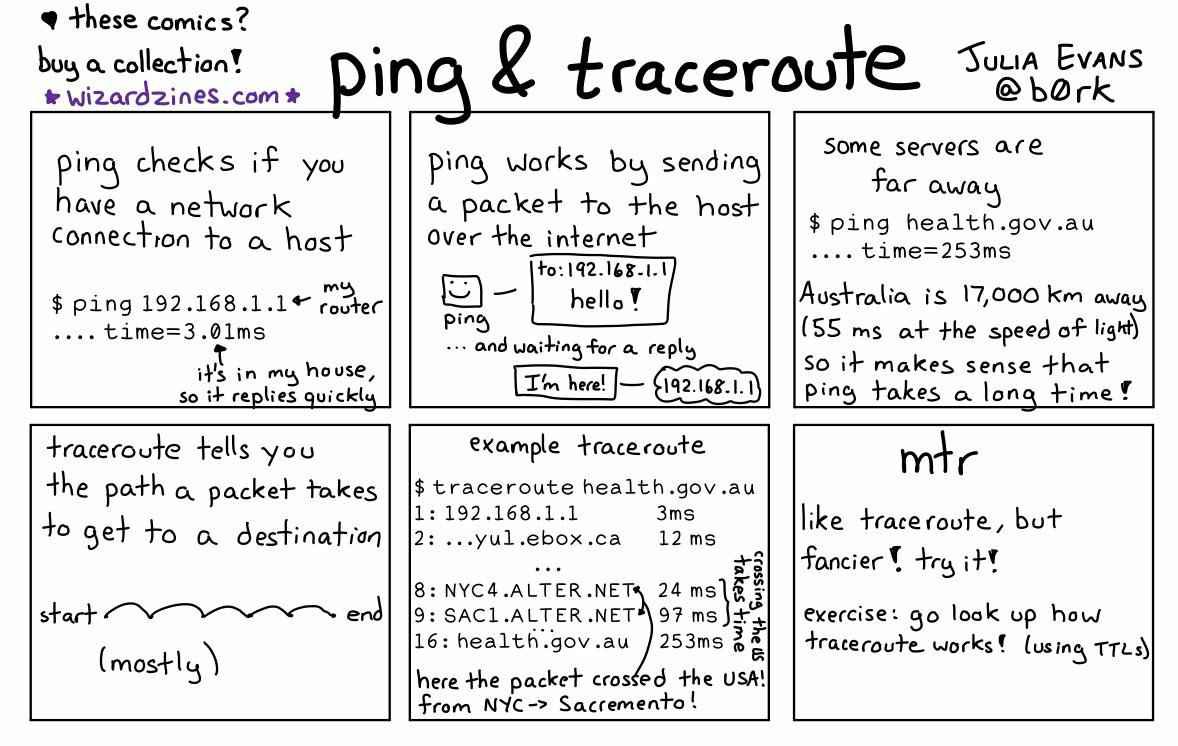 ♥ these comics?
buy a collection!
★ wizardzines.com ★
ping & traceroute
JULIA EVANS
@b0rk
ping checks if you
have a network
connection to a host
$ ping 192.168.1.1 ← my
router
.... time=3.01ms
it's in my house,
so it replies quickly
ping works by sending
a packet to the host
over the internet
to:192.168.1.1
hello!
ping
... and waiting for a reply
I'm here!
192.168.1.1
some servers are
far away
$ ping health.gov.au
.... time=253ms
Australia is 17,000 km away
(55 ms at the speed of light)
so it makes sense that
ping takes a long time!
traceroute tells you
the path a packet takes
to get to a destination
start end
(mostly)
example traceroute
$ traceroute health.gov.au
1: 192.168.1.1 3ms
2: ...yul.ebox.ca 12 ms
...
8: NYC4.ALTER.NET 24 ms
9: SAC1.ALTER.NET 97 ms
...
16: health.gov.au 253ms
crossing the US
takes time
here the packet crossed the USA!
from NYC -> Sacremento!
mtr
like traceroute, but
fancier! try it!
exercise: go look up how
traceroute works! (using TTLs)